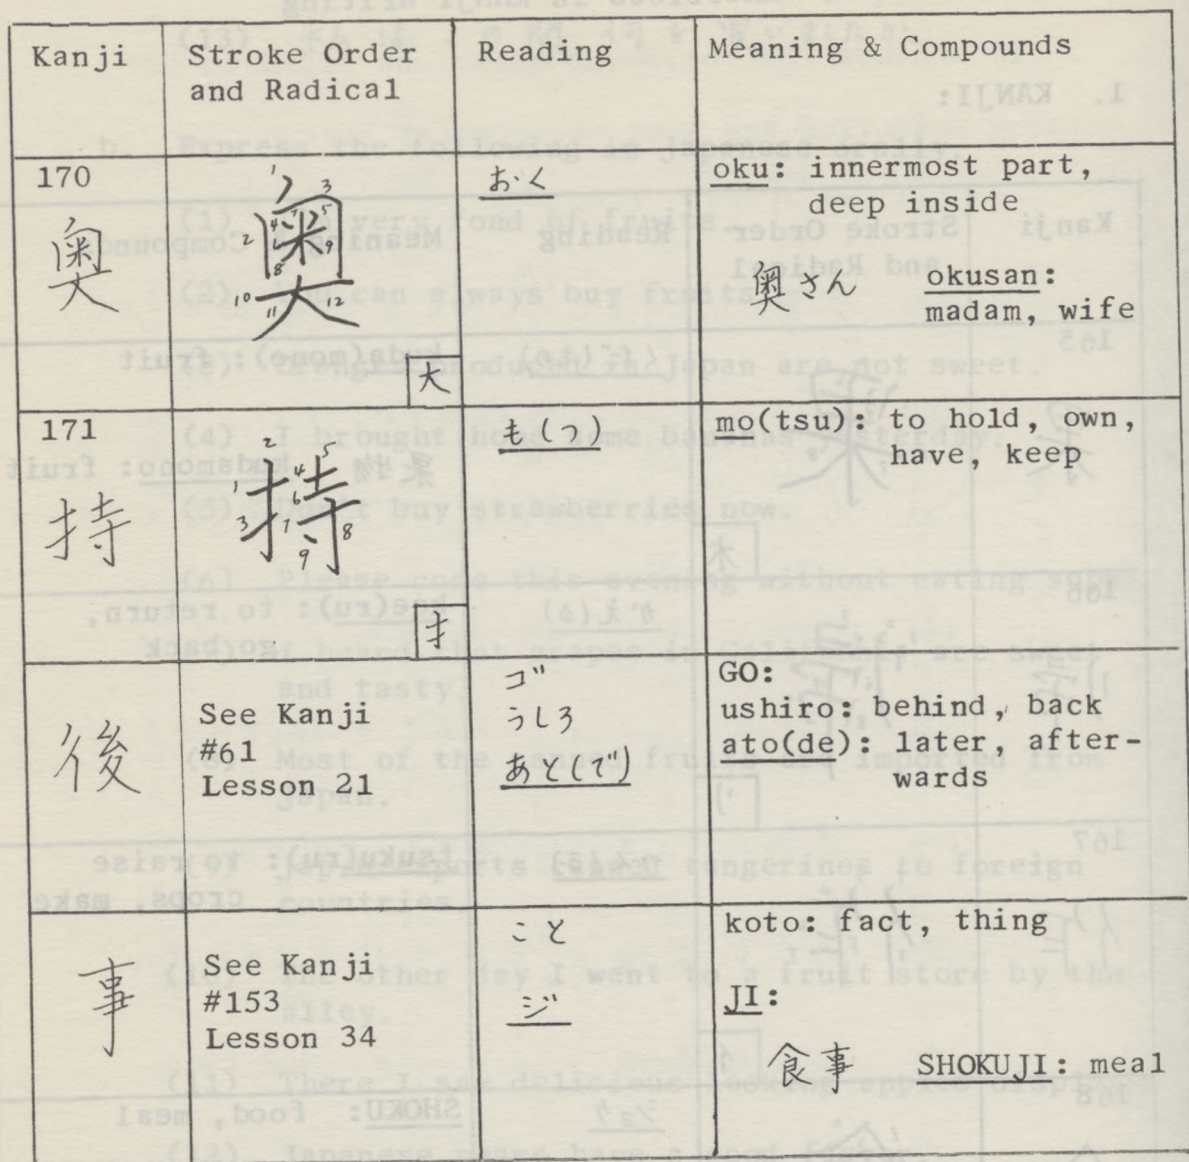 Kanji
Stroke Order and Radical
Reading
Meaning & Compounds
170
奥
1 2 3 4 5 8 9 10 11 12
奥
大
おく
oku: innermost part,
deep inside
奥さん okusan:
madam, wife
171
持
1 2 3 4 5 6 7 8 9
持
扌
も(つ)
mo(tsu): to hold, own,
have, keep
後
See Kanji
#61
Lesson 21
ゴ
うしろ
あと(で)
GO:
ushiro: behind, back
ato(de): later, after-
wards
事
See Kanji
#153
Lesson 34
こと
ジ
koto: fact, thing
JI:
食事 SHOKUJI: meal